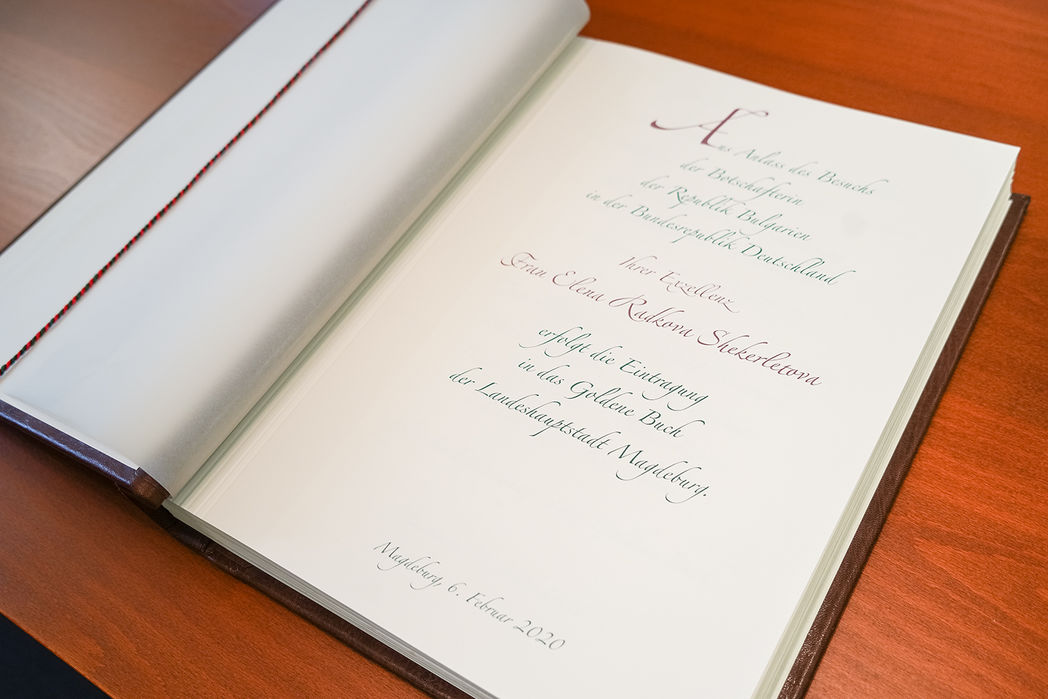 Aus Anlass des Besuchs
der Botschafterin
der Republik Bulgarien
in der Bundesrepublik Deutschland,
Ihrer Exzellenz
Frau Elena Radkova Shekerletova
erfolgt die Eintragung
in das Goldene Buch
der Landeshauptstadt Magdeburg.
Magdeburg, 6. Februar 2020